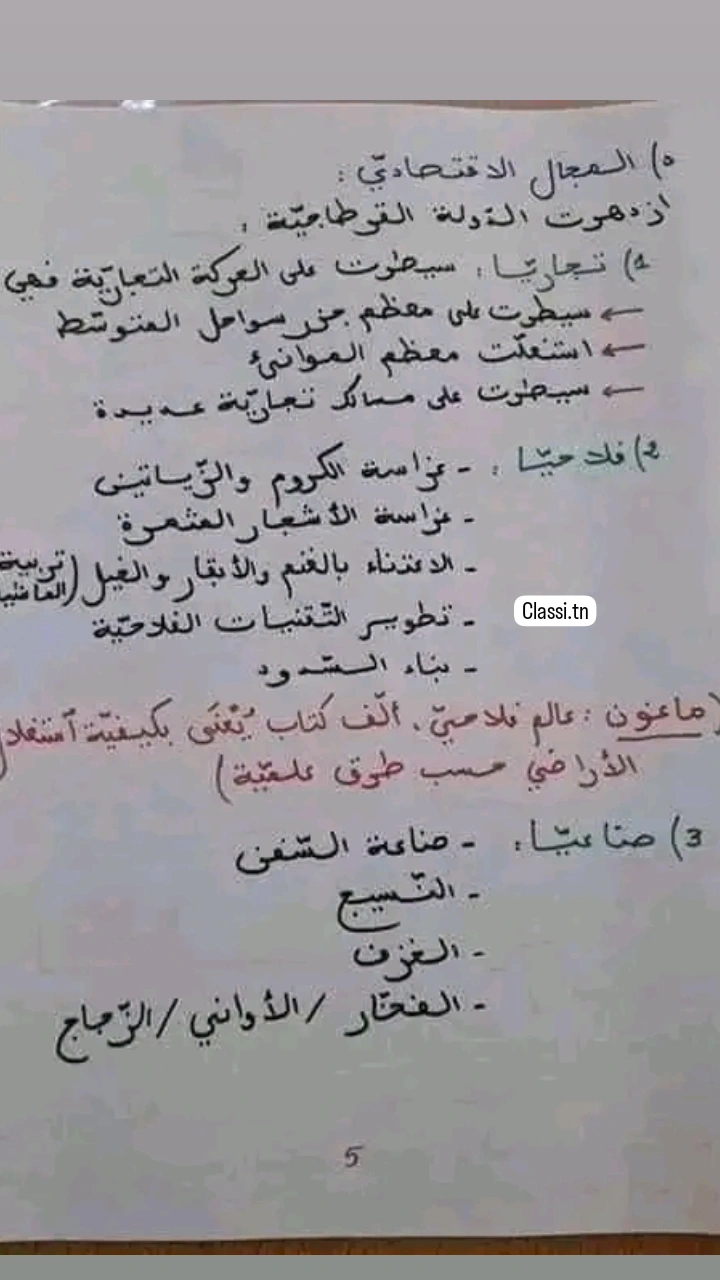 ه) المجال الاقتصاديّ :
ازدهرت الدّولة القرطاجيّة :
1) تجاريّا : سيطرت على الحركة التّجاريّة فهي
← سيطرت على معظم جزر سواحل المتوسّط
← استغلّت معظم الموانئ
← سيطرت على مسالك تجاريّة عديدة
2) فلاحيّا : - غراسة الكروم والزّياتين
- غراسة الأشجار المثمرة
- الاعتناء بالغنم والأبقار والخيل (تربية
الماشية
- تطوير التّقنيات الفلاحيّة
Classi.tn
- بناء السّدود
(ماغون : عالم فلاحيّ. ألّف كتاب يُعْنَى بكيفيّة استغلال
الأراضي حسب طرق علميّة)
3) صناعيّا : - صناعة السّفن
- النّسيج
- الخزف
- الفخّار / الأواني / الزّجاج
5